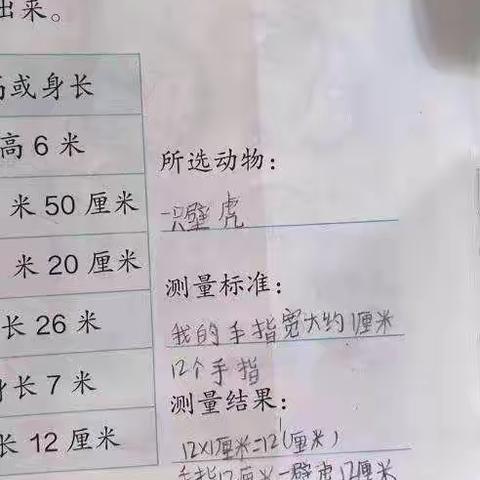 出来。
高或身长
高 6 米
米 50 厘米
米 20 厘米
长 26 米
身长 7 米
长 12 厘米
所选动物：
一只壁虎
测量标准：
我的手指宽大约1厘米
12个手指
测量结果：
12×1厘米=12(厘米)
手指12厘米=壁虎12厘米